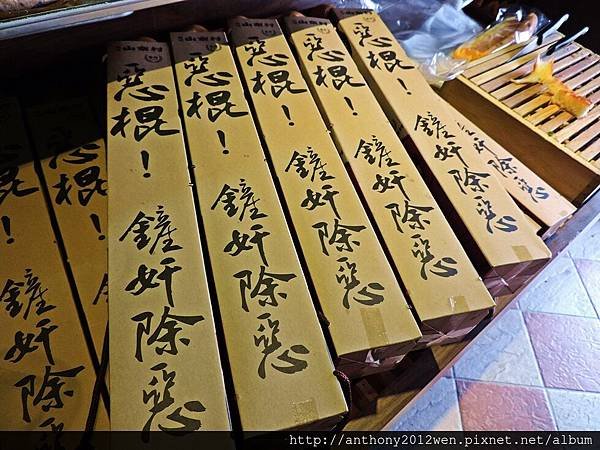 惡棍！
鏟奸除惡
惡棍！
鏟奸除惡
惡棍！
鏟奸除惡
惡棍！
鏟奸除惡
惡棍！
鏟奸除惡
鏟奸除惡
惡棍！
鏟奸除惡
棍！
鏟奸除惡
http://anthony2012wen.pixnet.net/album